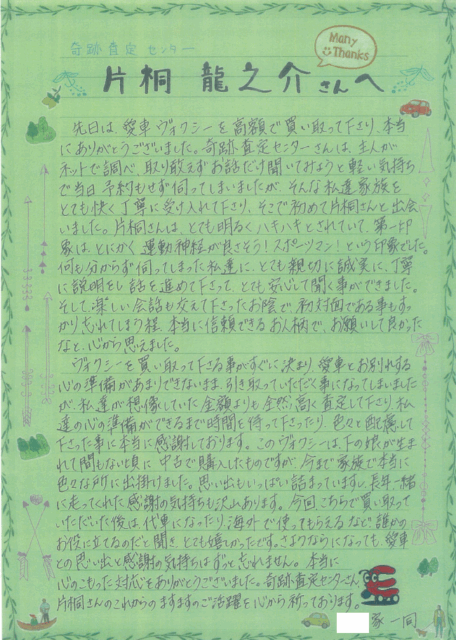 奇跡査定センター
Many Thanks
片桐 龍之介さんへ
先日は、愛車ヴォクシーを高額で買い取って下さり、本当
にありがとうございました。奇跡査定センターさんは、主人が
ネットで調べ、取り敢えずお話だけ聞いてみようと軽い気持ち
で当日予約もせず伺ってしまいましたが、そんな私達家族を
とても快く丁寧に受け入れて下さり、そこで初めて片桐さんと出会
いました。片桐さんは、とても明るくハキハキとされていて、第一印
象は、とにかく運動神経が良さそう!スポーツマン!という印象でした。
何も分からず伺ってしまった私達に、とても親切に誠実に、丁寧
に説明をし話を進めて下さって、とても安心して聞く事ができました。
そして、楽しい会話も交えて下さったお陰で、初対面である事もすっ
かり忘れてしまう程、本当に信頼できるお人柄で、お願いして良かった
なと、心から思えました。
ヴォクシーを買い取って下さる事がすぐに決まり、愛車とお別れする
心の準備があまりできないまま、引き取っていただく事になってしまいました
が、私達が想像していた金額よりも全然、高く査定して下さり、私
達の心の準備ができるまで時間を待って下さったり、色々と配慮して
下さった事に本当に感謝しております。このヴォクシーは、下の娘が生ま
れて間もない頃に、中古で購入したものですが、今まで家族で本当に
色々な所に出掛けました。思い出もいっぱい詰まっていますし、長年一緒
に走ってくれた感謝の気持ちも沢山あります。今回、こちらで買い取って
いただいた後は、代車になったり、海外で使ってもらえるなど、誰かの
お役に立てるのだと聞き、とても嬉しかったです。さようならになっても、愛車
との思い出と感謝の気持ちはずっと忘れません。本当に
心のこもった対応をありがとうございました。奇跡査定センターさん
片桐さんのこれからのますますのご活躍を心から祈っております。
家一同